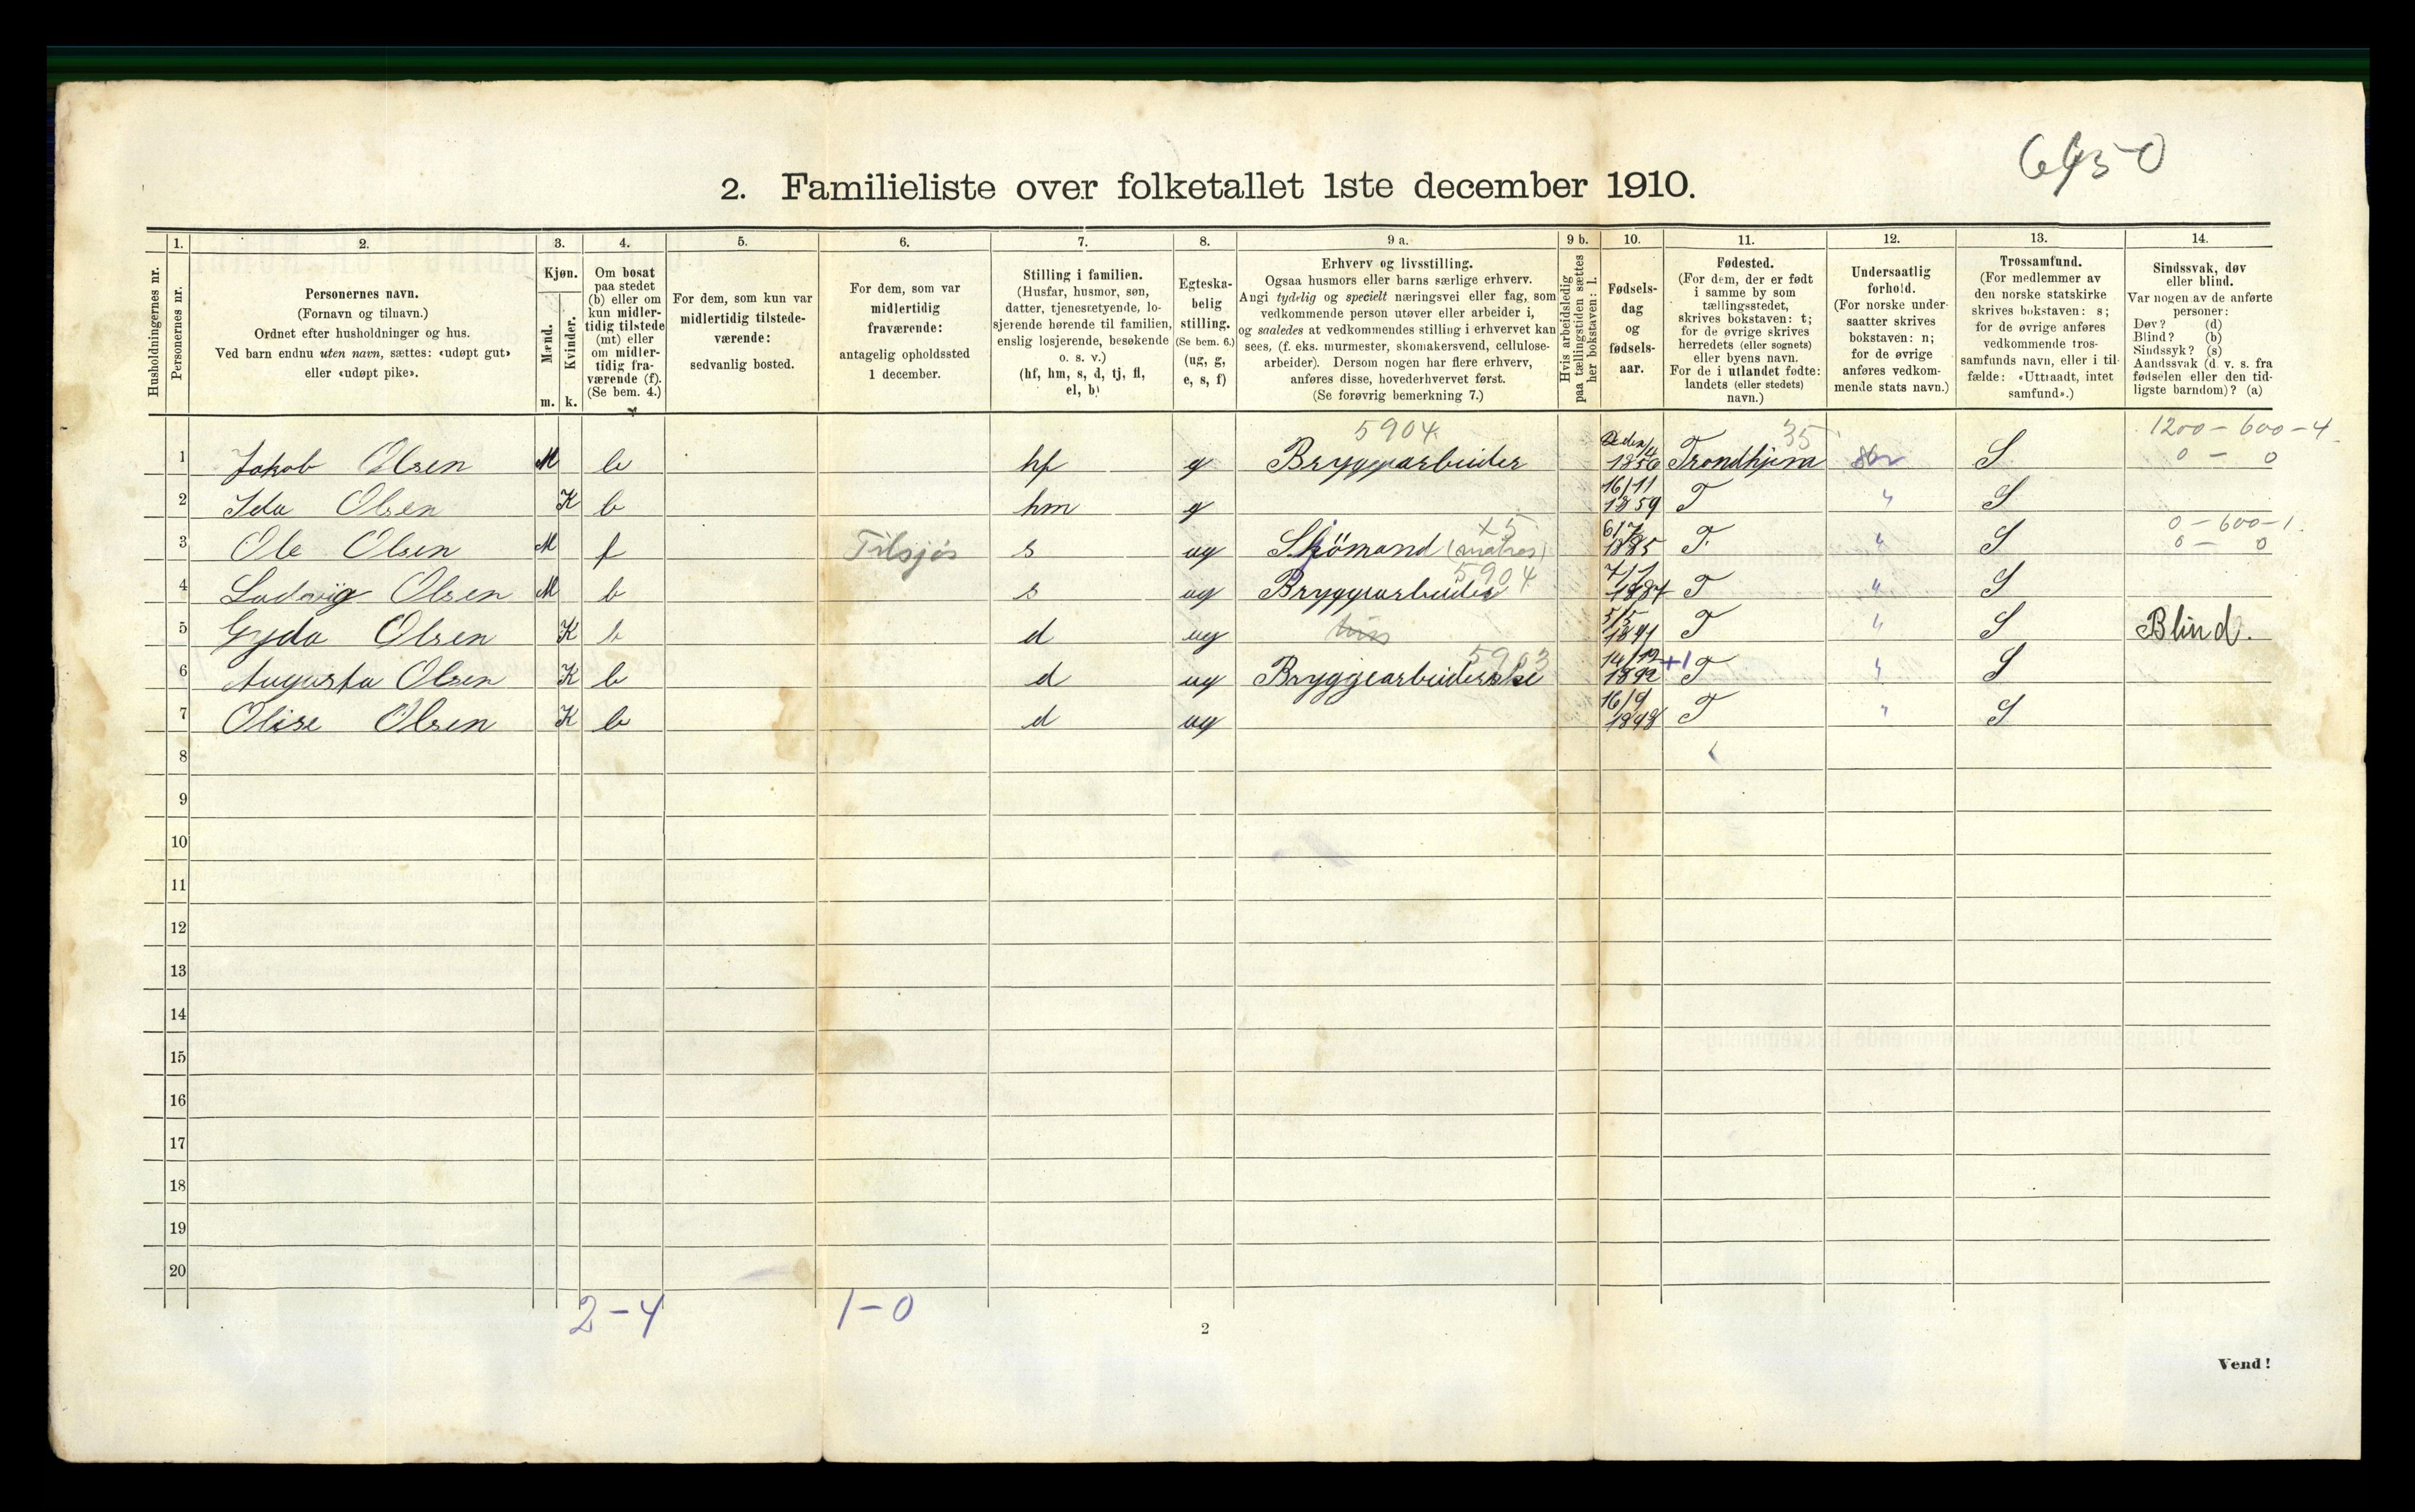 6450
2. Familieliste over folketallet 1ste december 1910.
Husholdningernes nr.
1.
Personernes nr.
2.
Personernes navn.
(Fornavn og tilnavn.)
Ordnet efter husholdninger og hus.
Ved barn endnu uten navn, sættes: «udøpt gut»
eller «udøpt pike».
3.
Kjøn.
Mænd.
Kvinder.
m. k.
4.
Om bosat
paa stedet
(b) eller om
kun midler-
tidig tilstede
(mt) eller
om midler-
tidig fra-
værende (f).
(Se bem. 4.)
5.
For dem, som kun var
midlertidig tilstede-
værende:
sedvanlig bosted.
6.
For dem, som var
midlertidig
fraværende:
antagelig opholdssted
1 december.
7.
Stilling i familien.
(Husfar, husmor, søn,
datter, tjenestetyende, lo-
sjerende hørende til familien,
enslig losjerende, besøkende
o. s. v.)
(hf, hm, s, d, tj, fl,
el, b)
8.
Egteska-
belig
stilling.
(Se bem. 6.)
(ug, g,
e, s, f)
9 a.
Erhverv og livsstilling.
Ogsaa husmors eller barns særlige erhverv.
Angi tydelig og specielt næringsvei eller fag, som
vedkommende person utøver eller arbeider i,
og saaledes at vedkommendes stilling i erhvervet kan
sees, (f. eks. murmester, skomakersvend, cellulose-
arbeider). Dersom nogen har flere erhverv,
anføres disse, hovederhvervet først.
(Se forøvrig bemerkning 7.)
9 b.
Hvis arbeidsledig
paa tællingstiden sættes
her bokstaven: l.
10.
Fødsels-
dag
og
fødsels-
aar.
11.
Fødested.
(For dem, der er født
i samme by som
tællingsstedet,
skrives bokstaven: t;
for de øvrige skrives
herredets (eller sognets)
eller byens navn.
For de i utlandet fødte:
landets (eller stedets)
navn.)
12.
Undersaatlig
forhold.
(For norske under-
saatter skrives
bokstaven: n;
for de øvrige
anføres vedkom-
mende stats navn.)
13.
Trossamfund.
(For medlemmer av
den norske statskirke
skrives bokstaven: s;
for de øvrige anføres
vedkommende tros-
samfunds navn, eller i til-
fælde: «Uttraadt, intet
samfund».)
14.
Sindssvak, døv
eller blind.
Var nogen av de anførte
personer:
Døv? (d)
Blind? (b)
Sindssyk? (s)
Aandssvak (d. v. s. fra
fødselen eller den tid-
ligste barndom)? (a)
5904 35 1200-600-4
1 Jakob Olsen M b hf g Bryggearbeider 1856 Trondhjem S 0 - 0
2 Ida Olsen K b hm g 16/11 1859 T " S
x5 0-600-1.
3 Ole Olsen M f Tilsjøs s ug Sjömand (matros) 6/7 1885 T. " S 0 - 0
5904
4 Ludvig Olsen M b s ug Bryggearbeider 7/7 1887 T " S
5 Gyda Olsen K b d ug 5/5 1891 T " S Blind.
5903 +1
6 Augusta Olsen K b d ug Bryggearbeiderske 14/12 1892 T " S
7 Olise Olsen K b d ug 16/9 1898 T " S
8
9
10
11
12
13
14
15
16
17
18
19
20
2-4 1-0
2
Vend!